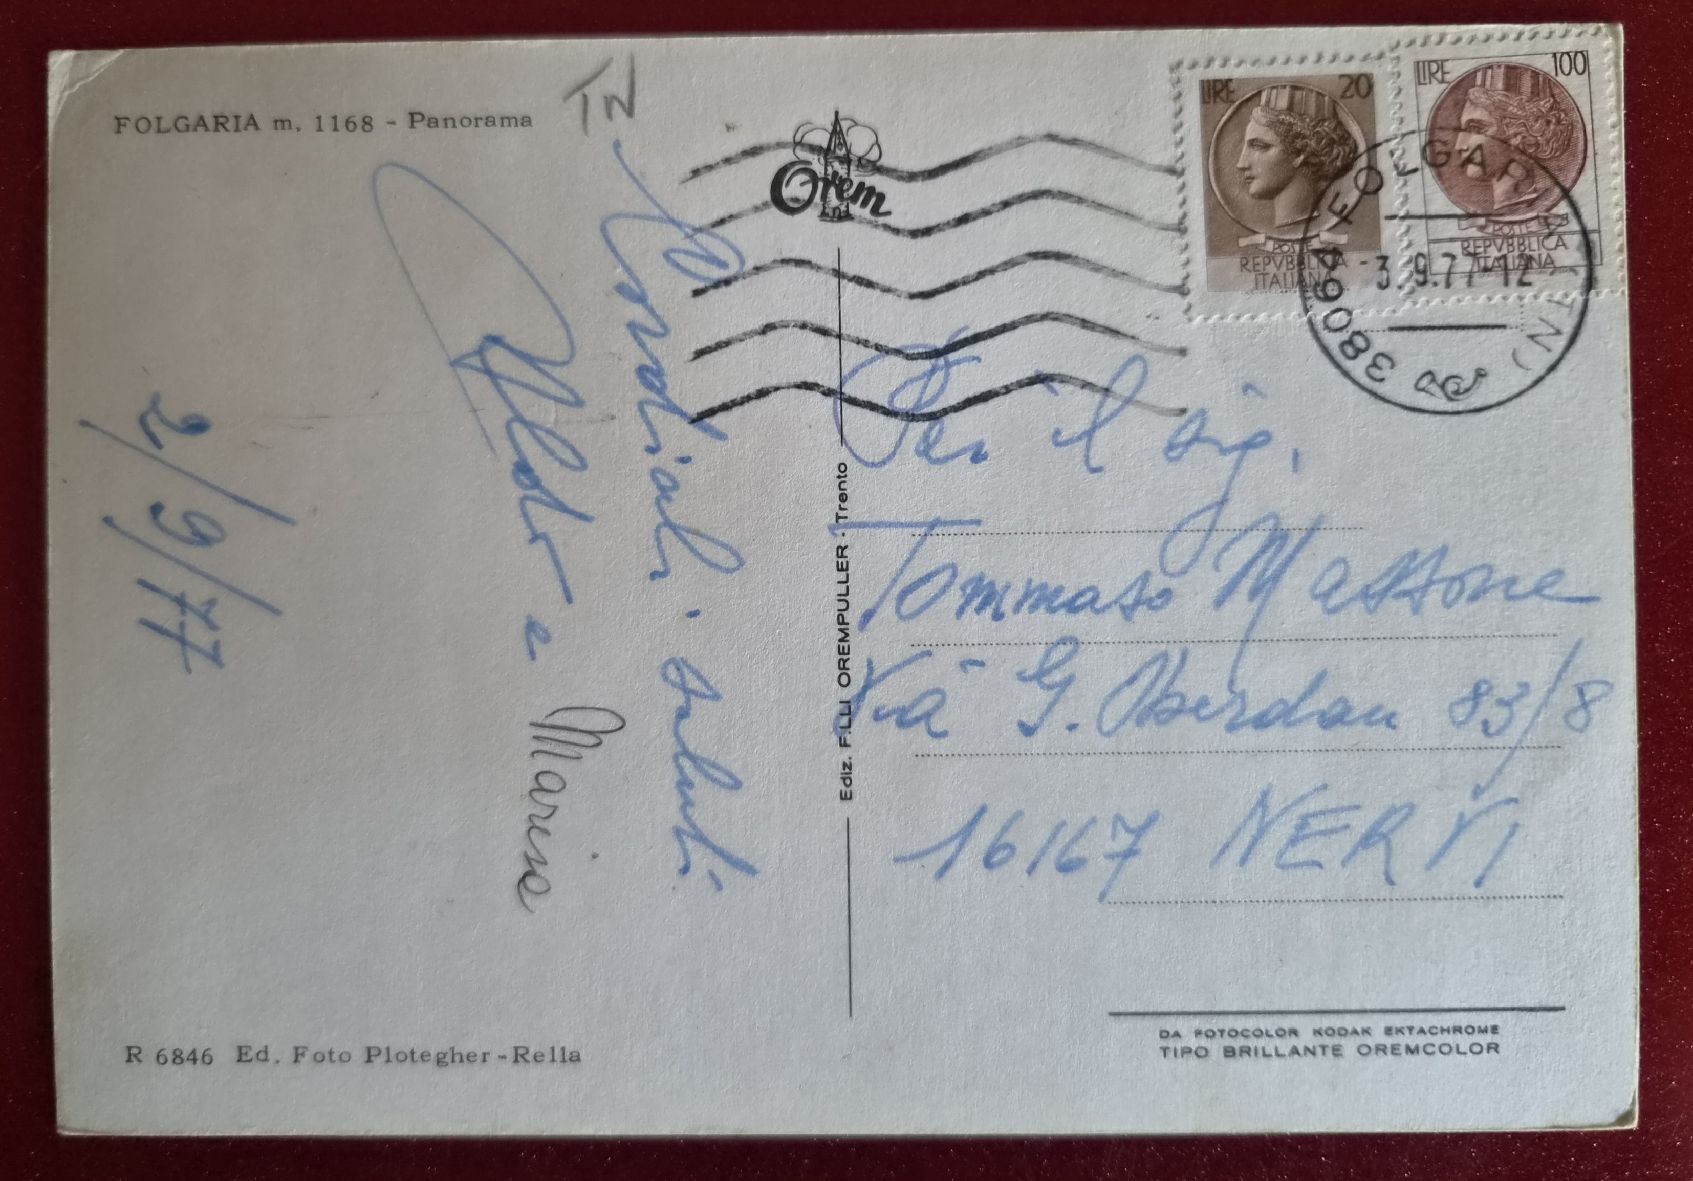 FOLGARIA m. 1168 - Panorama
TN
Cordiali saluti
Aldo e
Marisa
2/9/77
R 6846 Ed. Foto Plotegher-Rella
Orem
Ediz. F.LLI OREMPULLER - Trento
LIRE 20
POSTE
REPVBBLICA
ITALIANA
LIRE 100
POSTE
REPVBBLICA
ITALIANA
38064 FOLGARIA (TN)
-3.9.77-12
Per il sig.
Tommaso Massone
Via G. Oberdan 83/8
16167 NERVI
DA FOTOCOLOR KODAK EKTACHROME
TIPO BRILLANTE OREMCOLOR